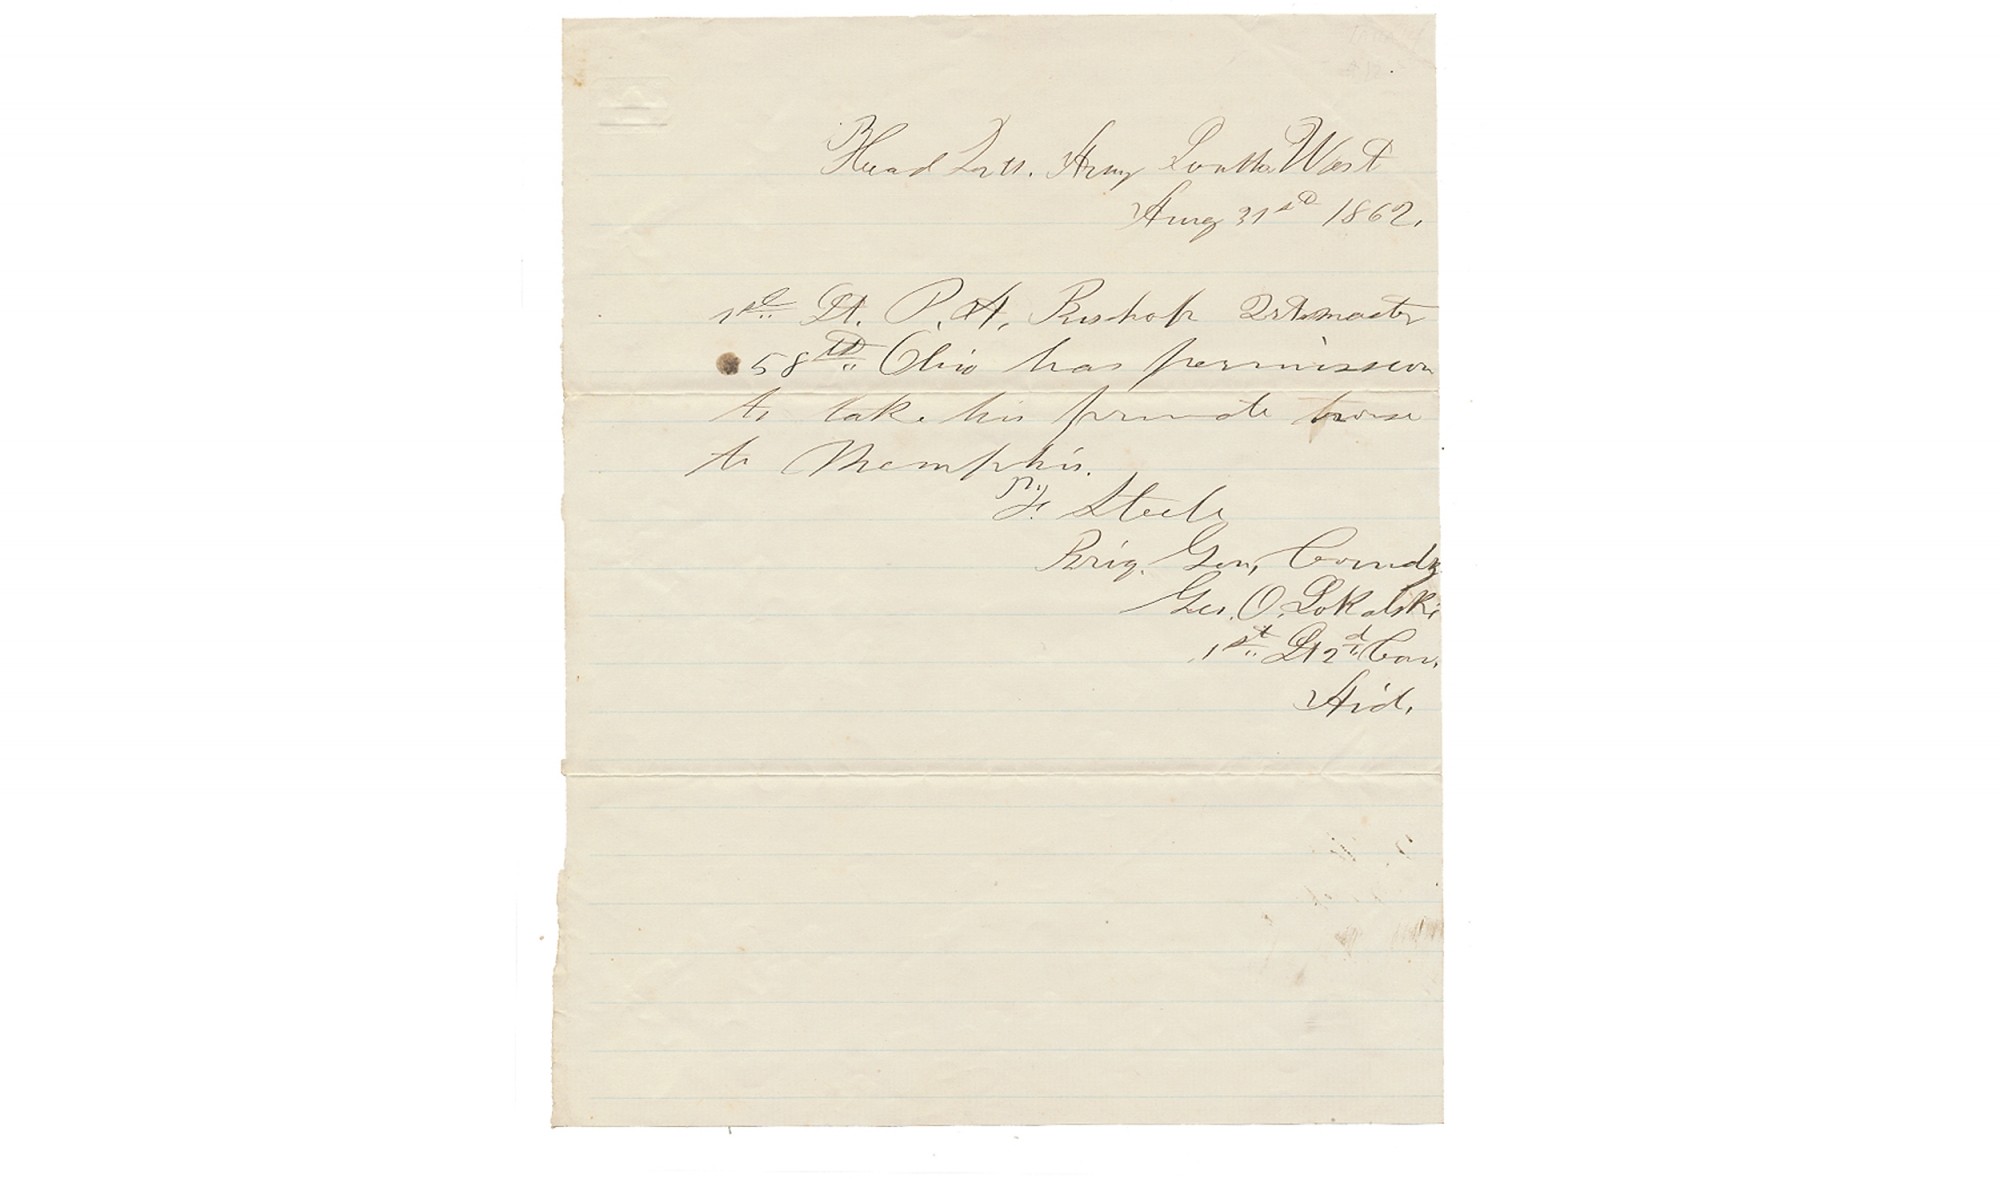 Head Qrts. Army South West
Aug 31st 1862.
1st Lt. P. H. Bishop Qrtmaster
58th Ohio has permission
to take his private horse
to Memphis.
By
F. Steele
Brig. Gen, Comdg
Geo. O. Sokalski
1st Lt 2d Cav.
Aid.